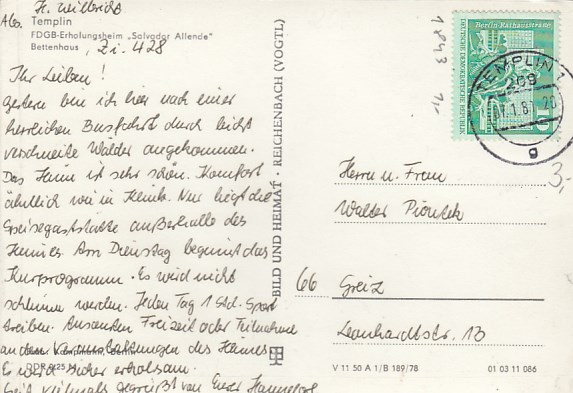 H. Neilbrich
Abs. Templin
FDGB-Erholungsheim „Salvador Allende"
Bettenhaus, Zi. 428
Ihr Lieben!
Gestern bin ich hier nach einer
herrlichen Busfahrt durch leicht
verschneite Wälder angekommen.
Das Heim ist sehr schön. Komfort
ähnlich wie in Klink. Nur liegt die
Speisegaststätte außerhalb des
Heimes. Am Dienstag beginnt das
Kurprogramm. Es wird nicht
schlimm werden. Jeden Tag 1 Std. Sport
treiben. Ansonsten Freizeit oder Teilnahme
an den Veranstaltungen des Heimes
Es wird sicher erholsam.
Seid vielmals gegrüßt von Eurer Hannelore
DDR
BILD UND HEIMAT · REICHENBACH (VOGTL)
1843
7,-
Berlin-Rathausstraße
DEUTSCHE DEMOKRATISCHE REPUBLIK
10
TEMPLIN 1
209
g
3,-
Herrn u. Frau
Walter Piontek
66 Greiz
Leonhardtstr. 13
V 11 50 A 1/B 189/78 01 03 11 086